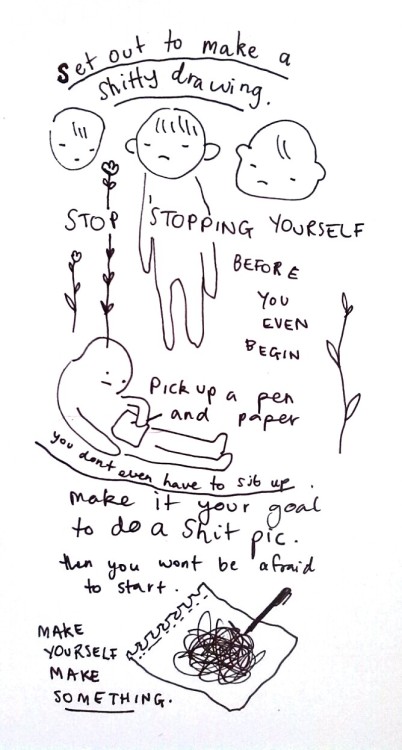 Set out to make a
shitty drawing.
STOP STOPPING YOURSELF
BEFORE
YOU
EVEN
BEGIN
Pick up a pen
and paper
you dont even have to sit up.
make it your goal
to do a shit pic.
then you wont be afraid
to start.
MAKE
YOURSELF
MAKE
SOMETHING.